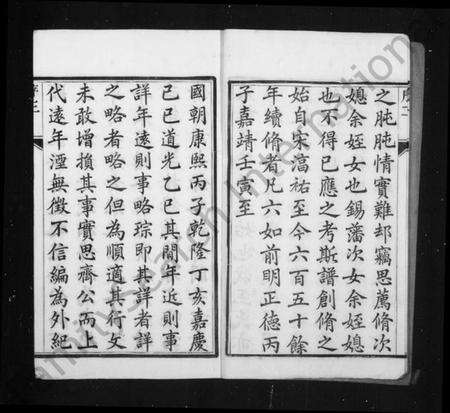 之肫肫情實難却竊思薦脩次
媳余姪女也錫藩次女余姪媳
也不得已應之考斯譜創脩之
始自宋淳祐至今六百五十餘
年續脩者凡六如前明正德丙
子嘉靖壬寅至
國朝康熙丙子乾隆丁亥嘉慶
己巳道光乙巳其間年近則事
詳年遠則事略琮即其詳者詳
之略者略之但為順適其行文
未敢增損其事實思齊公而上
代遠年湮無徵不信編為外紀